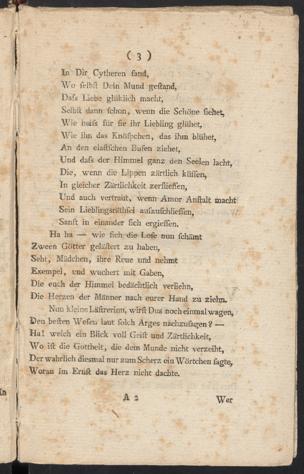 ( 3 )
In Dir Cytheren fand,
Wo selbst Dein Mund gestand,
Daſs Liebe glüklich macht,
Selbst dann schon, wenn die Schöne siehet,
Wie heiſs für sie ihr Liebling glühet,
Wie ihn das Knöspchen, das ihm blühet,
An den elastischen Busen ziehet,
Und daſs der Himmel ganz den Seelen lacht,
Die, wenn die Lippen zärtlich küssen,
In gleicher Zärtlichkeit zerfliessen,
Und auch vertraut, wenn Amor Anstalt macht
Sein Lieblingsräthsel aufzuschliessen,
Sanft in einander sich ergiessen.
Ha ha — wie sich die Lose nun schämt
Zween Götter gelästert zu haben,
Seht, Mädchen, ihre Reue und nehmt
Exempel, und wuchert mit Gaben,
Die euch der Himmel bedächtlich verliehn,
Die Herzen der Männer nach eurer Hand zu ziehn.
Nun kleine Lästrerinn, wirst Dus noch einmal wagen,
Den besten Wesen laut solch Arges nachzusagen? —
Ha! welch ein Blick voll Geist und Zärtlichkeit,
Wo ist die Gottheit, die dem Munde nicht verzeiht,
Der wahrlich diesmal nur zum Scherz ein Wörtchen sagte,
Woran im Ernst das Herz nicht dachte.
A 2
Wer